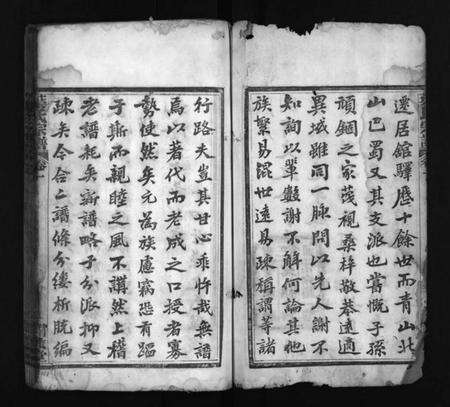 遷居館驛歷十餘世而青山北
山巴蜀又其支派也嘗慨子孫
頑錮之家蔑視桑梓敬恭遠適
異域雖同一脉問以先人謝不
知詢以單數謝不解何論其他
族繁易混世遠易疎稱謂等諸
行路夫豈其甘心乖忤哉無譜
焉以著代而老成之口授者寡
勢使然矣元為族慮竊恐有蹈
于斯而親睦之風不講然上稽
老譜耗矣新譜略于分派抑又
疎矣今合二譜條分縷析脫編